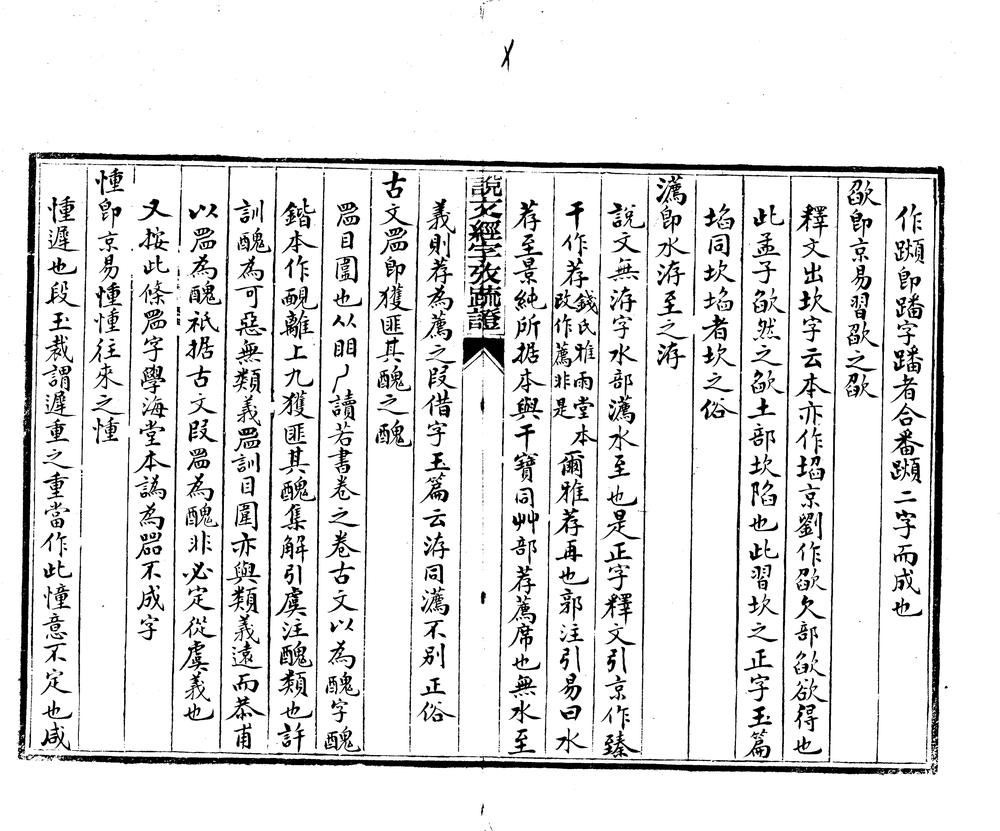 作蹞卽蹯字蹯者合番蹞二字而成也
欿卽京易習欿之欿
釋文出坎字云本亦作埳京劉作欿欠部欿欲得也
此孟子欿然之欿土部坎陷也此習坎之正字玉篇
埳同坎埳者坎之俗
瀳卽水洊至之洊
說文無洊字水部瀳水至也是正字釋文引京作臻
干作荐錢氏雅雨堂本改作薦非是爾雅荐再也郭注引易曰水
荐至景純所据本與干寶同艸部荐薦席也無水至
說文經字攷疏證
義則荐為薦之叚借字玉篇云洊同瀳不別正俗
古文𥇛卽獲匪其醜之醜
𥇛目圍也从䀠𠃋讀若書卷之卷古文以為醜字醜
鍇本作靦離上九獲匪其醜集解引虞注醜類也許
訓醜為可惡無類義𥇛訓目圍亦與類義遠而恭甫
以𥇛為醜祇据古文叚𥇛為醜非必定從虞義也
又按此條𥇛字學海堂本譌為噐不成字
憧卽京易憧憧往來之憧
憧遲也段玉裁謂遲重之重當作此憧意不定也咸